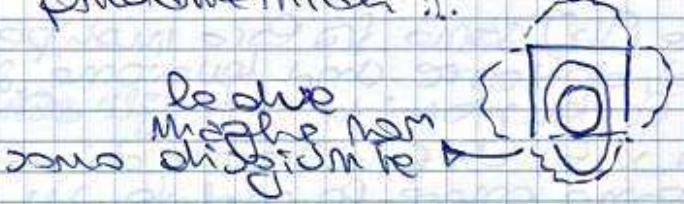 le due
maglie non
sono disgiunte